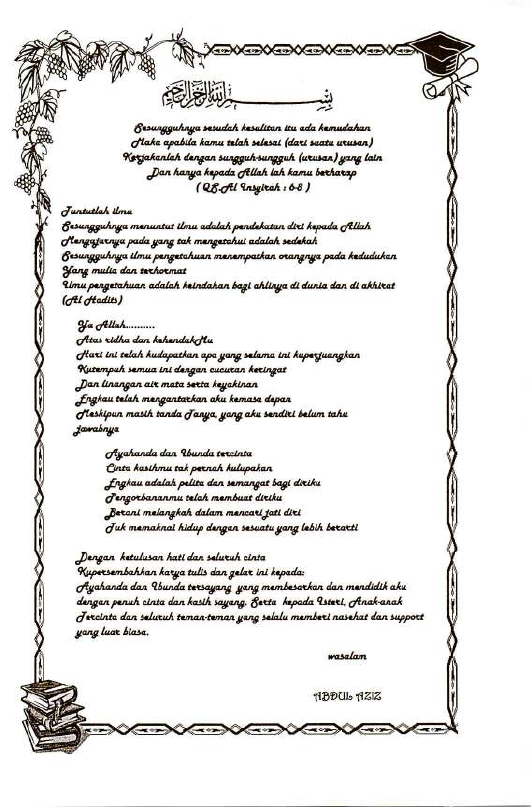 بسم الله الرحمن الرحيم
Sesungguhnya sesudah kesulitan itu ada kemudahan
Maka apabila kamu telah selesai (dari suatu urusan)
Kerjakanlah dengan sungguh-sungguh (urusan) yang lain
Dan hanya kepada Allah lah kamu berharap
( QS.Al Insyirah : 6-8 )
Tuntutlah ilmu
Sesungguhnya menuntut ilmu adalah pendekatan diri kepada Allah
Mengajarnya pada yang tak mengetahui adalah sedekah
Sesungguhnya ilmu pengetahuan menempatkan orangnya pada kedudukan
Yang mulia dan terhormat
Ilmu pengetahuan adalah keindahan bagi ahlinya di dunia dan di akhirat
(Al Hadits)
Ya Allah..........
Atas ridha dan kehendakMu
Hari ini telah kudapatkan apa yang selama ini kuperjuangkan
Kutempuh semua ini dengan cucuran keringat
Dan linangan air mata serta keyakinan
Engkau telah mengantarkan aku kemasa depan
Meskipun masih tanda Tanya, yang aku sendiri belum tahu
jawabnya
Ayahanda dan Ibunda tercinta
Cinta kasihmu tak pernah kulupakan
Engkau adalah pelita dan semangat bagi diriku
Pengorbananmu telah membuat diriku
Berani melangkah dalam mencari jati diri
Tuk memaknai hidup dengan sesuatu yang lebih berarti
Dengan ketulusan hati dan seluruh cinta
Kupersembahkan karya tulis dan gelar ini kepada:
Ayahanda dan Ibunda tersayang yang membesarkan dan mendidik aku
dengan penuh cinta dan kasih sayang. Serta kepada Isteri, Anak-anak
Tercinta dan seluruh teman-teman yang selalu memberi nasehat dan support
yang luar biasa.
wasalam
ABDUL AZIZ